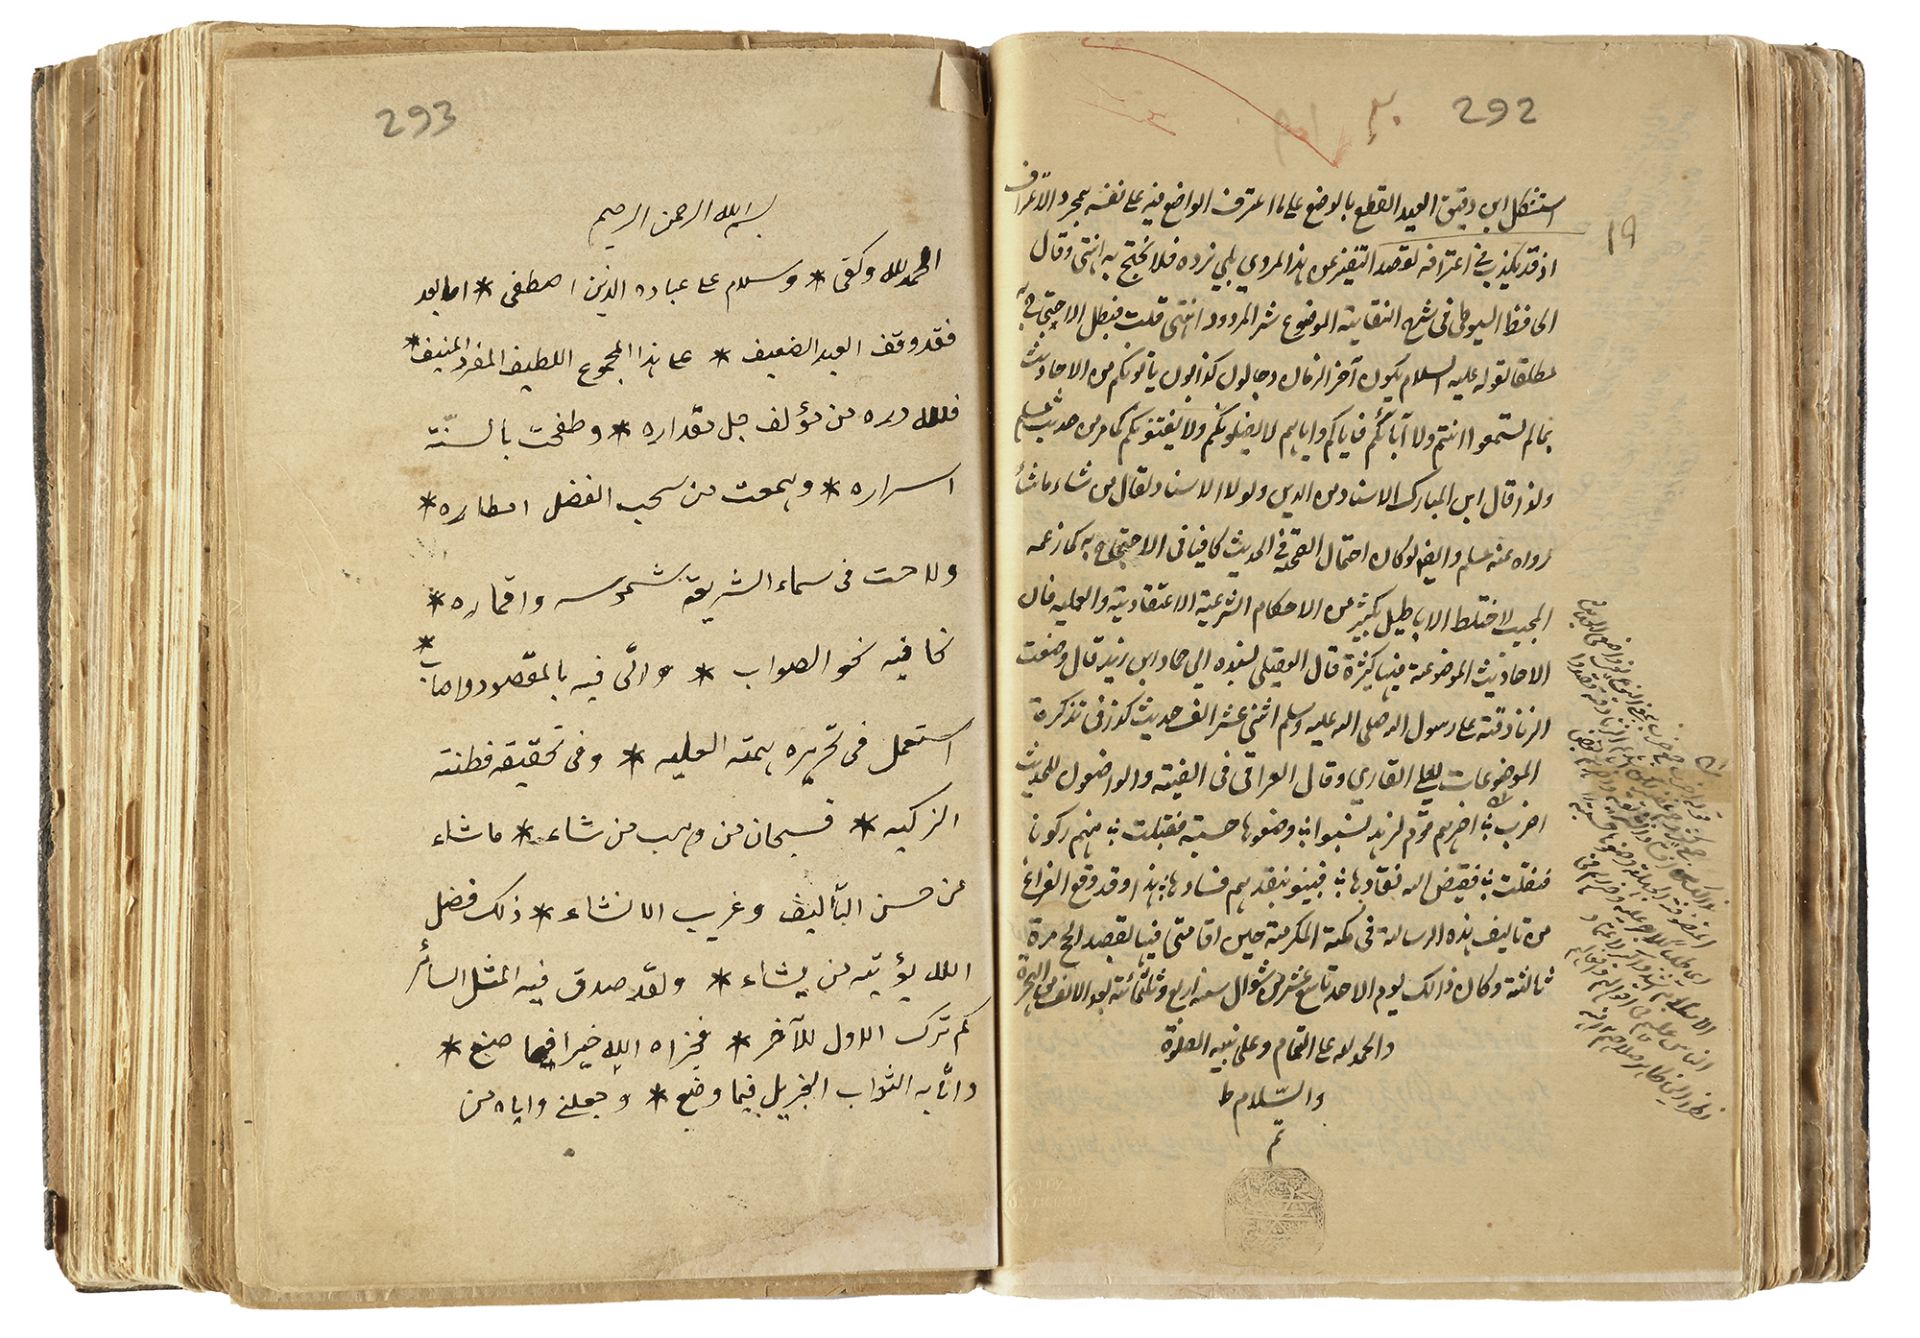 292
استشكل ابن دقيق العيد القطع بالوضع على ما اعترف الواضع فيه على نفسه بمجرد الاعتراف
اذ قد يكذب في اعترافه لقصد التنفير عن هذا المروي بلى نرده فلا نحتج به انتهى وقال
الحافظ السيوطي في شرح النقاية الموضوع شر المردود انتهى قلت فبطل الاحتجاج به
مطلقا لقوله عليه السلام يكون آخر الزمان دجالون كذابون يأتونكم من الاحاديث
بما لم تسمعوا انتم ولا آبائكم فاياكم واياهم لا يضلونكم ولا يفتنونكم كما مر من حديث مسلم
ولذا قال ابن المبارك الاسناد من الدين ولولا الاسناد لقال من شاء ما شاء
رواه عنه مسلم وايضا لو كان احتمال الصحة في الحديث كافيا في الاحتجاج به كما زعمه
المجيب لاختلط الاباطيل بكثير من الاحكام الشرعية الاعتقادية والعملية فان
الاحاديث الموضوعة فيها كثيرة قال العقيلي بسنده الى حماد ابن زيد قال وضعت
الزنادقة على رسول الله صلى الله عليه وسلم اثنى عشر الف حديث كذا في تذكرة
الموضوعات لعلي القاري وقال العراقي في الفيته والواضعون للحديث
اضرب ؞ اضرهم قوم لزهد نسبوا ؞ وضعوها حسبة فقبلت ؞ منهم ركونا
فنقلت ؞ فقيض الله نقادها ؞ فبينوا بنقدهم فسادها ؞ هذا وقد وقع الفراغ
من تاليف هذه الرسالة في مكة المكرمة حين اقامتي فيها لقصد الحج مرة
ثالثة وكان ذالك يوم الاحد تاسع عشر من شوال سنة اربع وثلثمائة بعد الالف من الهجرة
والحمد لله على التمام وعلى نبيه الصلوة
والسّلام ط
تم
19
293
بسم الله الرحمن الرحيم
الحمد لله وكفى * وسلام على عباده الذين اصطفى * اما بعد
فقد وقف العبد الضعيف * على هذا المجموع اللطيف المفرد المنيف *
فلله دره من مؤلف جل مقداره * وطفحت بالسنّة
اسراره * وهمعت من سحب الفضل امطاره *
ولاحت في سماء الشريعة شموسه واقماره *
نحا فيه نحو الصواب * واتى فيه بالمقصود واصاب *
استعمل في تحريره همته العليه * وفي تحقيقه فطنته
الزكيه * فسبحان من وهب من شاء * ما شاء
من حسن التأليف وغريب الانشاء * ذلك فضل
الله يؤتيه من يشاء * ولقد صدق فيه المثل السائر
كم ترك الاول للآخر * فجزاه الله خيرا فيما صنع *
واثابه الثواب الجزيل فيما وضع * وجعلني واياه من